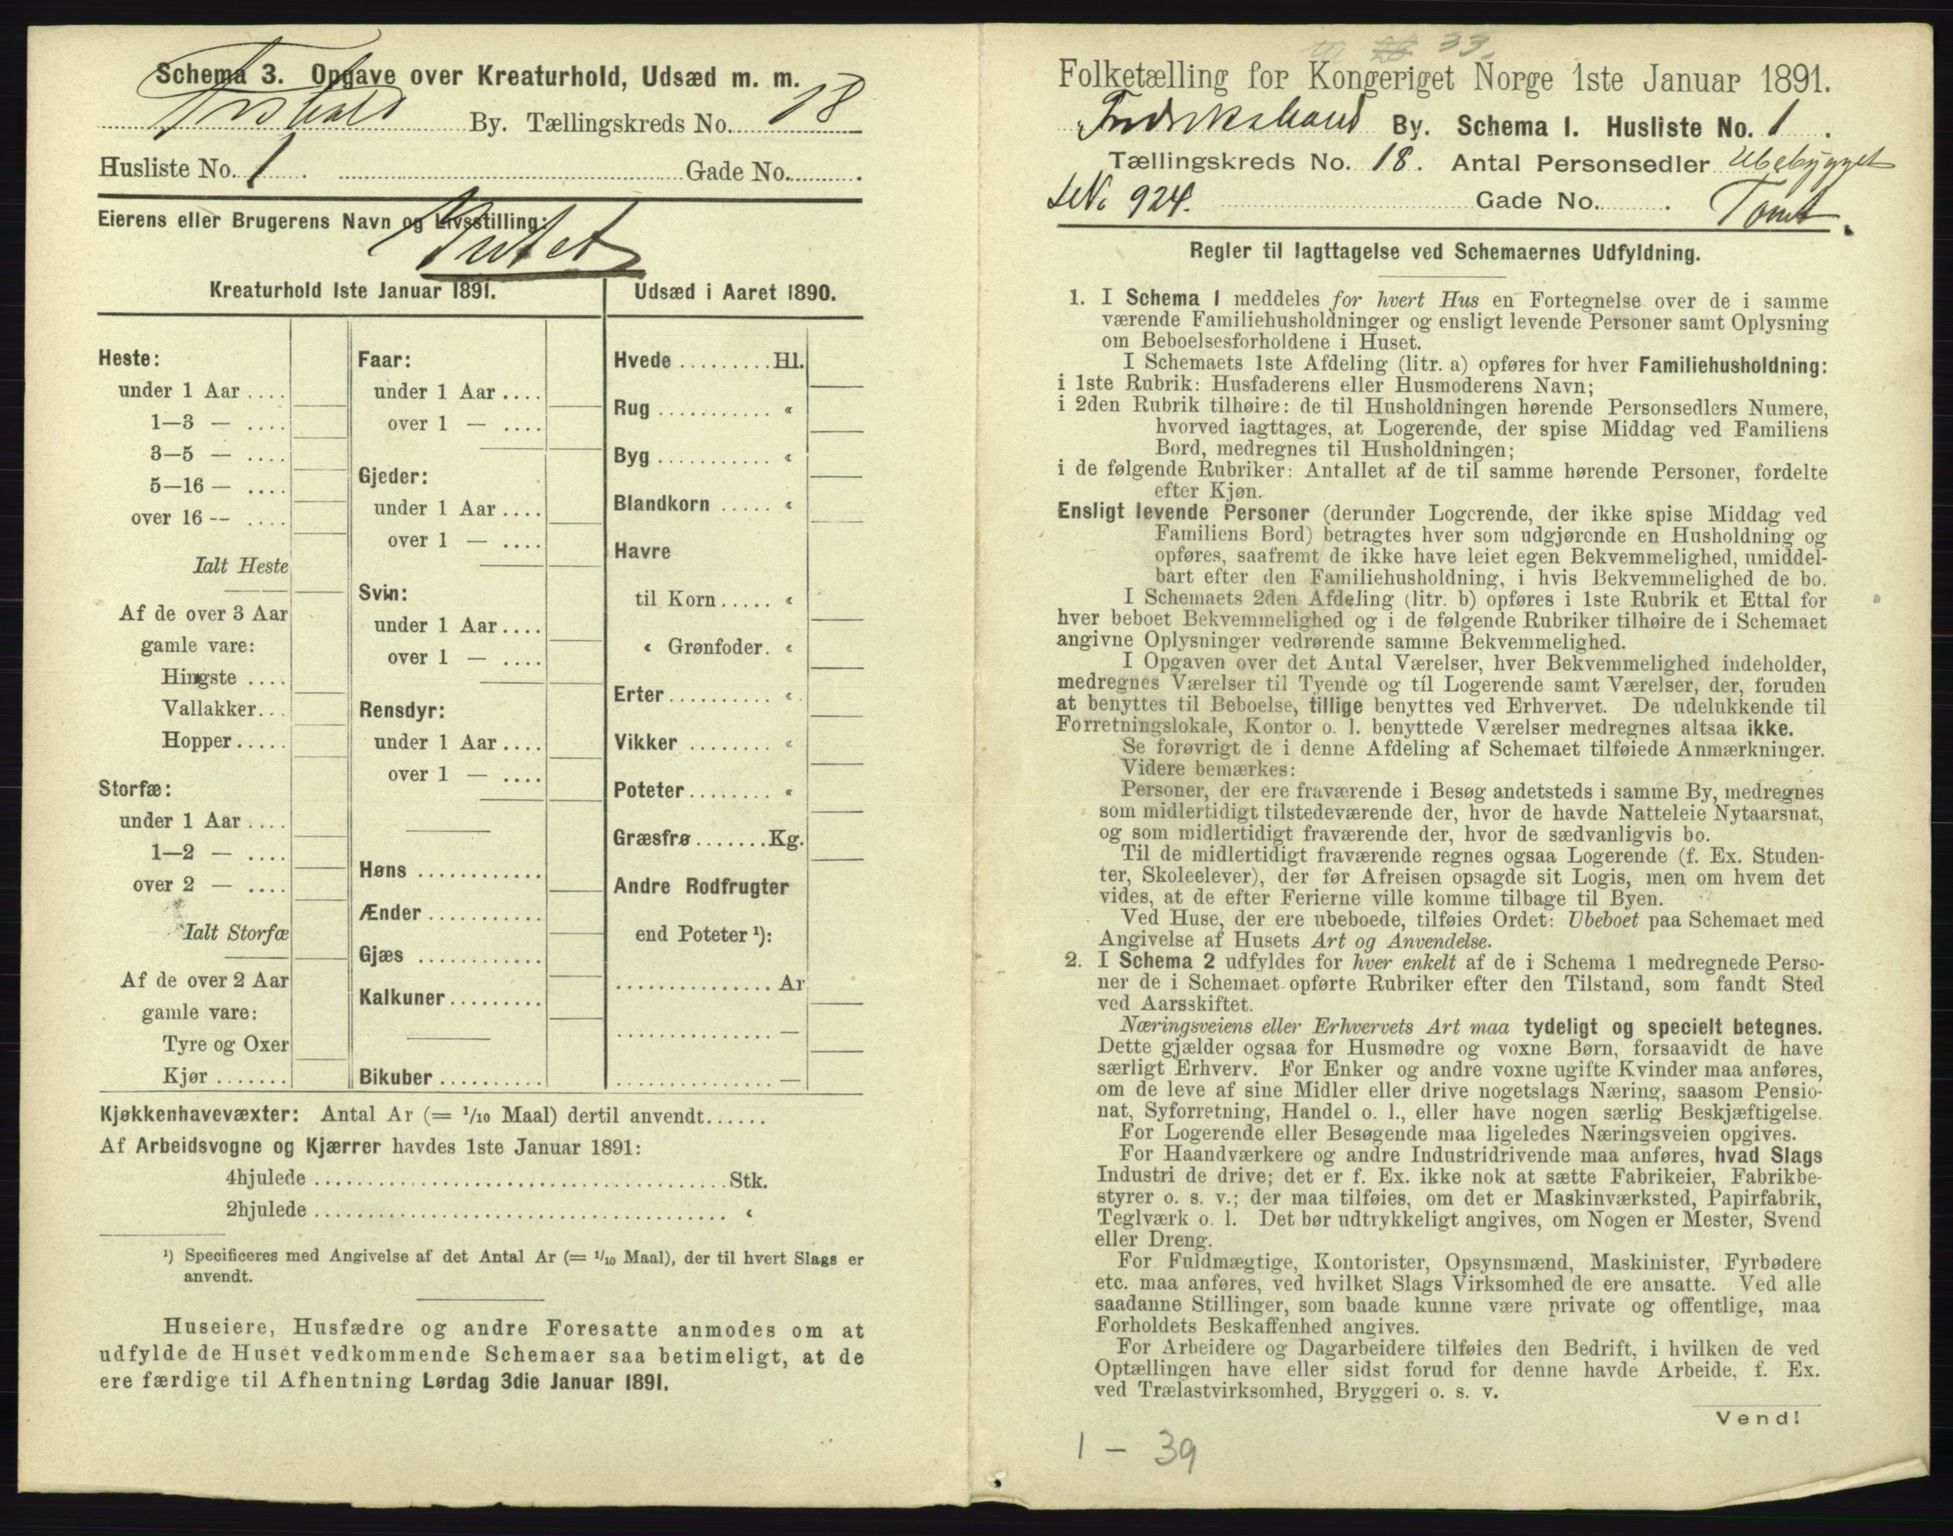 Schema 3. Opgave over Kreaturhold, Udsæd m. m.
Frshald By. Tællingskreds No. 18
Husliste No. 1. Gade No.
Eierens eller Brugerens Navn og Livsstilling:
Intet
Kreaturhold 1ste Januar 1891.
Heste:
under 1 Aar ....
1—3 — ....
3—5 — ....
5—16 — ....
over 16 -- ....
Ialt Heste
Af de over 3 Aar
gamle vare:
Hingste ....
Vallakker...
Hopper.....
Storfæ:
under 1 Aar ....
1—2 — ....
over 2 — ....
Ialt Storfæ
Af de over 2 Aar
gamle vare:
Tyre og Oxer
Kjør .......
Faar:
under 1 Aar ....
over 1 — ....
Gjeder:
under 1 Aar ....
over 1 — ....
Svin:
under 1 Aar ....
over 1 — ....
Rensdyr:
under 1 Aar ....
over 1 — ....
Høns ............
Ænder ...........
Gjæs ............
Kalkuner.........
Bikuber ..........
Udsæd i Aaret 1890.
Hvede .........Hl.
Rug ........... «
Byg ........... «
Blandkorn ..... «
Havre
til Korn..... «
« Grønfoder. «
Erter.......... «
Vikker ........ «
Poteter........ «
Græsfrø.......Kg.
Andre Rodfrugter
end Poteter ¹):
............... Ar
............... —
............... —
Kjøkkenhavevæxter: Antal Ar (= 1/10 Maal) dertil anvendt......
Af Arbeidsvogne og Kjærrer havdes 1ste Januar 1891:
4hjulede ........................................Stk.
2hjulede ........................................ «
¹) Specificeres med Angivelse af det Antal Ar (= 1/10 Maal), der til hvert Slags er
anvendt.
Huseiere, Husfædre og andre Foresatte anmodes om at
udfylde de Huset vedkommende Schemaer saa betimeligt, at de
ere færdige til Afhentning Lørdag 3die Januar 1891.
33.
Folketælling for Kongeriget Norge 1ste Januar 1891.
Fredrikshald By. Schema I. Husliste No. 1.
Tællingskreds No. 18. Antal Personsedler Ubebygget
No 924. Gade No. . Tomt.
Regler til Iagttagelse ved Schemaernes Udfyldning.
1. I Schema 1 meddeles for hvert Hus en Fortegnelse over de i samme
værende Familiehusholdninger og ensligt levende Personer samt Oplysning
om Beboelsesforholdene i Huset.
I Schemaets 1ste Afdeling (litr. a) opføres for hver Familiehusholdning:
i 1ste Rubrik: Husfaderens eller Husmoderens Navn;
i 2den Rubrik tilhøire: de til Husholdningen hørende Personsedlers Numere,
hvorved iagttages, at Logerende, der spise Middag ved Familiens
Bord, medregnes til Husholdningen;
i de følgende Rubriker: Antallet af de til samme hørende Personer, fordelte
efter Kjøn.
Ensligt levende Personer (derunder Logerende, der ikke spise Middag ved
Familiens Bord) betragtes hver som udgjørende en Husholdning og
opføres, saafremt de ikke have leiet egen Bekvemmelighed, umiddel-
bart efter den Familiehusholdning, i hvis Bekvemmelighed de bo.
I Schemaets 2den Afdeling (litr. b) opføres i 1ste Rubrik et Ettal for
hver beboet Bekvemmelighed og i de følgende Rubriker tilhøire de i Schemaet
angivne Oplysninger vedrørende samme Bekvemmelighed.
I Opgaven over det Antal Værelser, hver Bekvemmelighed indeholder,
medregnes Værelser til Tyende og til Logerende samt Værelser, der, foruden
at benyttes til Beboelse, tillige benyttes ved Erhvervet. De udelukkende til
Forretningslokale, Kontor o. l. benyttede Værelser medregnes altsaa ikke.
Se forøvrigt de i denne Afdeling af Schemaet tilføiede Anmærkninger.
Videre bemærkes:
Personer, der ere fraværende i Besøg andetsteds i samme By, medregnes
som midlertidigt tilstedeværende der, hvor de havde Natteleie Nytaarsnat,
og som midlertidigt fraværende der, hvor de sædvanligvis bo.
Til de midlertidigt fraværende regnes ogsaa Logerende (f. Ex. Studen-
ter, Skoleelever), der før Afreisen opsagde sit Logis, men om hvem det
vides, at de efter Ferierne ville komme tilbage til Byen.
Ved Huse, der ere ubeboede, tilføies Ordet: Ubeboet paa Schemaet med
Angivelse af Husets Art og Anvendelse.
2. I Schema 2 udfyldes for hver enkelt af de i Schema 1 medregnede Perso-
ner de i Schemaet opførte Rubriker efter den Tilstand, som fandt Sted
ved Aarsskiftet.
Næringsveiens eller Erhvervets Art maa tydeligt og specielt betegnes.
Dette gjælder ogsaa for Husmødre og voxne Børn, forsaavidt de have
særligt Erhverv. For Enker og andre voxne ugifte Kvinder maa anføres,
om de leve af sine Midler eller drive nogetslags Næring, saasom Pensio-
nat, Syforretning, Handel o. l., eller have nogen særlig Beskjæftigelse.
For Logerende eller Besøgende maa ligeledes Næringsveien opgives.
For Haandværkere og andre Industridrivende maa anføres, hvad Slags
Industri de drive; det er f. Ex. ikke nok at sætte Fabrikeier, Fabrikbe-
styrer o. s. v.; der maa tilføies, om det er Maskinværksted, Papirfabrik,
Teglværk o. l. Det bør udtrykkeligt angives, om Nogen er Mester, Svend
eller Dreng.
For Fuldmægtige, Kontorister, Opsynsmænd, Maskinister, Fyrbødere
etc. maa anføres, ved hvilket Slags Virksomhed de ere ansatte. Ved alle
saadanne Stillinger, som baade kunne være private og offentlige, maa
Forholdets Beskaffenhed angives.
For Arbeidere og Dagarbeidere tilføies den Bedrift, i hvilken de ved
Optællingen have eller sidst forud for denne havde Arbeide, f. Ex.
ved Trælastvirksomhed, Bryggeri o. s. v.
Vend!
1 — 39